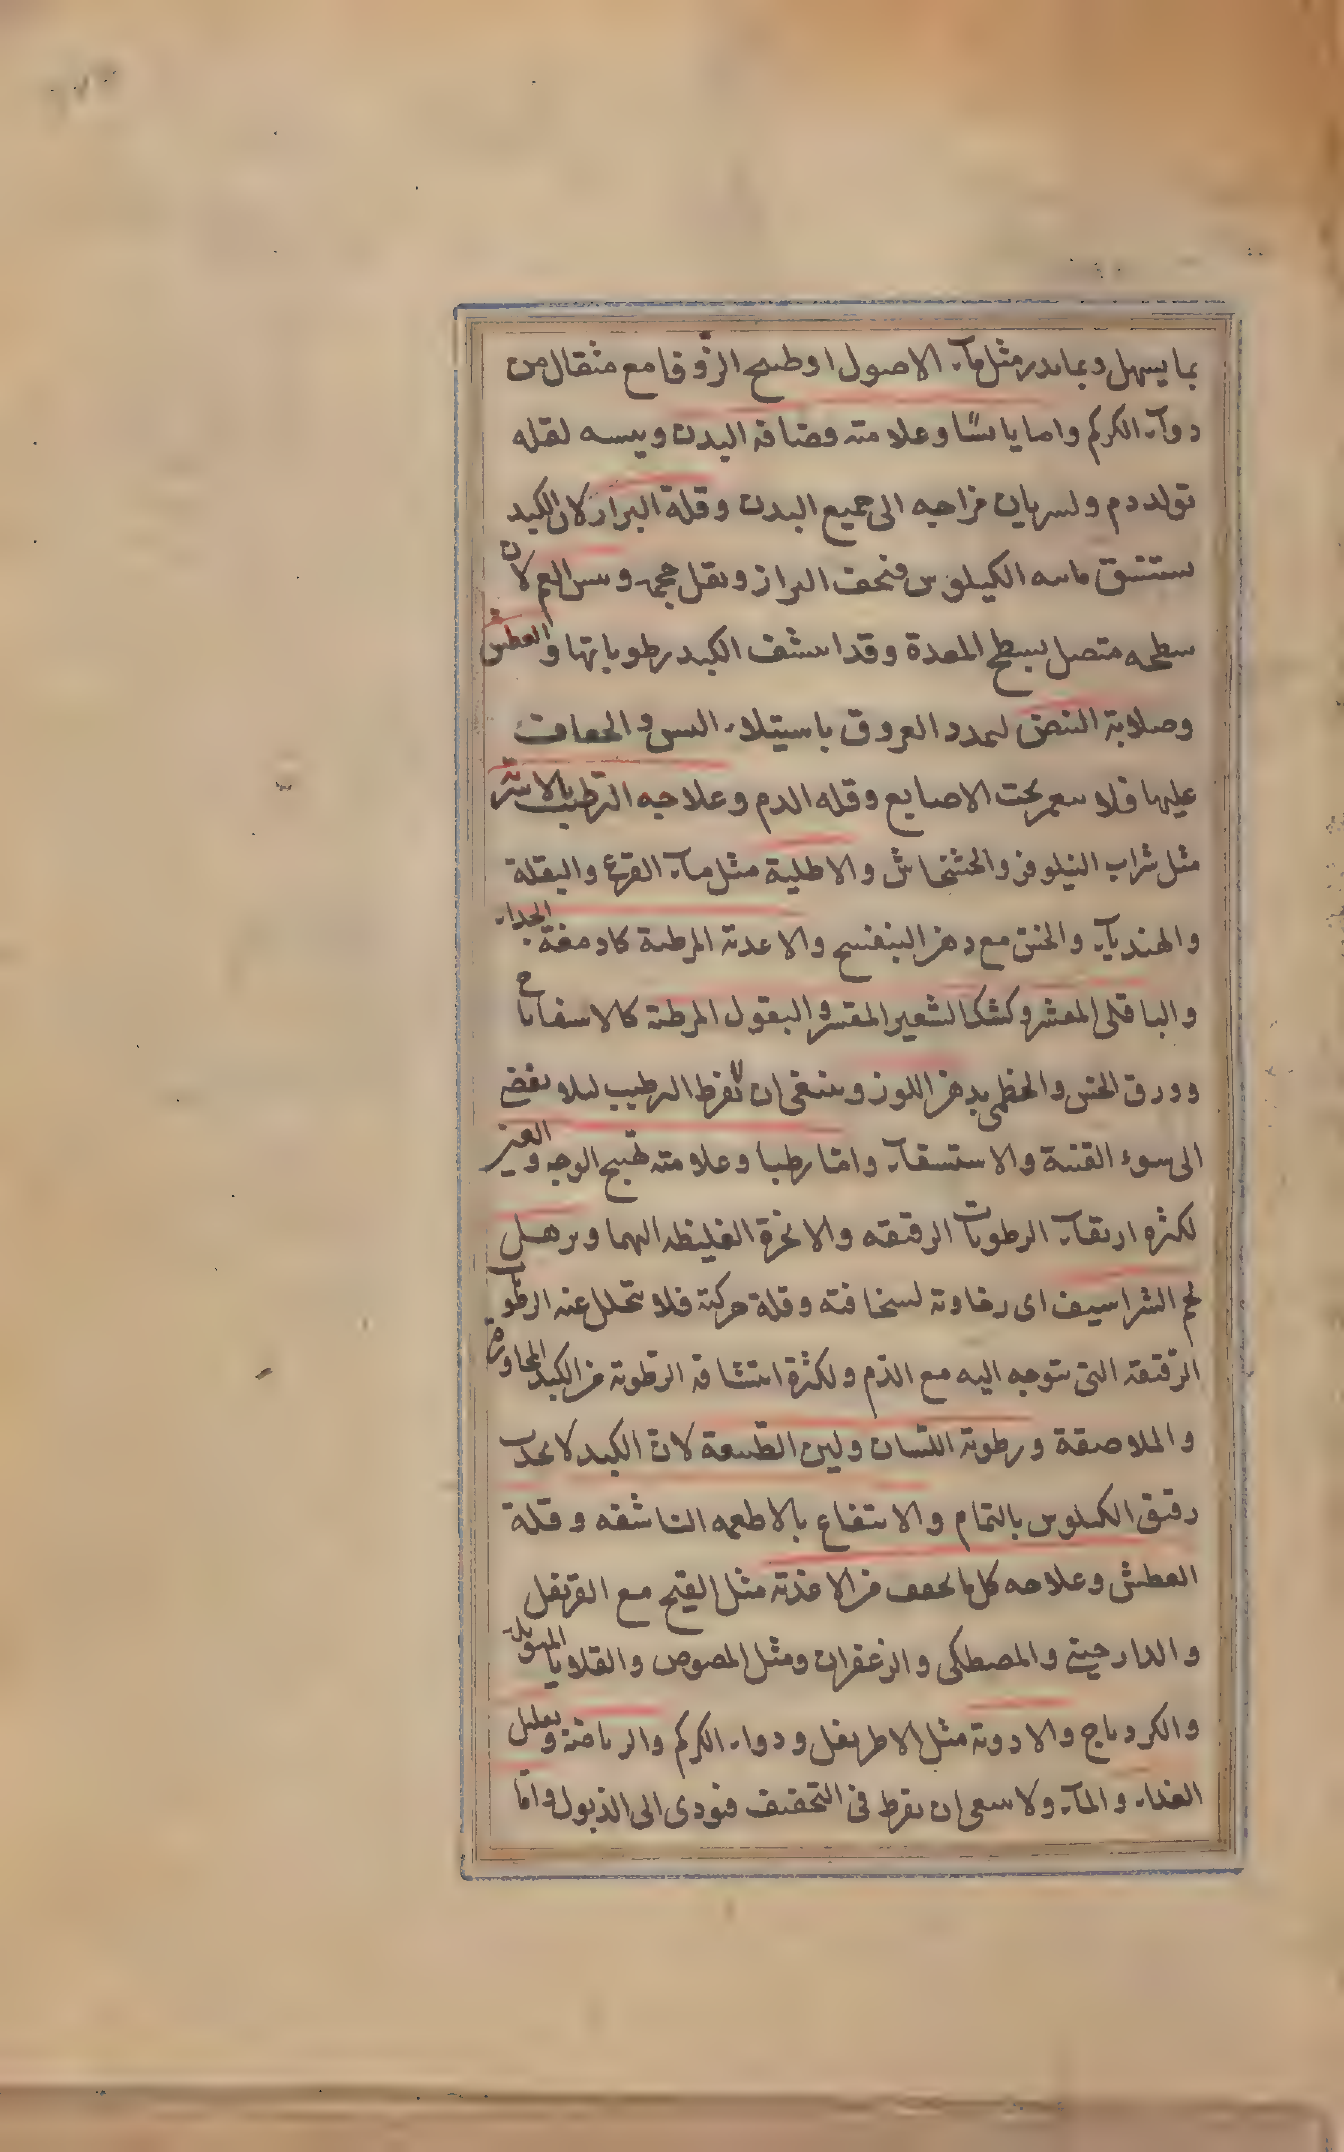 بما يسهل وبما يدر مثل مآء الاصول او طبيخ الزّوفا مع مثقال من
دوآء الكركم واما يابسًا وعلامته قضافة البدن ويبسه لقلة
تولد دم ولسريان مزاجه الى جميع البدن وقلة البراز لان الكبد
ستنشق مائيه الكيلوس فيجف البراز ويقل حجمه ويبس الفم لان
سطحه متصل بسطح المعدة وقد استنشف الكبد رطوباتها والعطش
وصلابة النبض لتمدد العروق باستيلاء اليبس والجفاف
عليها فلا ينغمر تحت الاصابع وقلة الدم وعلاجه الترطيب بالاشربة
مثل شراب النيلوفر والخشخاش والاطلية مثل مآء القرع والبقلة
والهندبآء والخس مع دهن البنفسج والاغذية المرطبة كادمغة الجداء
والباقلى المقشر وكشك الشعير المقشر والبقول المرطبة كالاسفاناخ
وورق الخس والخطمى بدهن اللوز وينبغى ان لا يفرط الترطيب لئلا يفضى
الى سوء القنية والاستسقآء وامّا رطبا وعلامته تهبج الوجه والعين
لكثرة ارتقآء الرطوبات الرقيقة والابخرة الغليظة اليهما وترهل
لحم الشراسيف اى رخاوته لسخافته وقلة حركته فلا يتحلل عنه الرطوبات
الرّقيقة التى يتوجه اليه مع الدّم ولكثرة انتشافه الرّطوبة من الكبد المجاورة
والملاصقة ورطوبة اللسان ولين الطّبيعة لان الكبد لا يجذب
رقيق الكيلوس بالتمام والانتفاع بالاطعمه الناشفه وقلة
العطش وعلاجه كل ما يجفف من الاغذية مثل القبج مع القرنفل
والدارچينى والمصطكى والزعفران ومثل المصوص والقلايا المبزرة
والكردباج والادوية مثل الاطريفل ودواء الكركم والرياضة وتقليل
الغذاء والمآء ولا ينبغى ان يفرط فى التجفيف فيودى الى الذبول وامّا